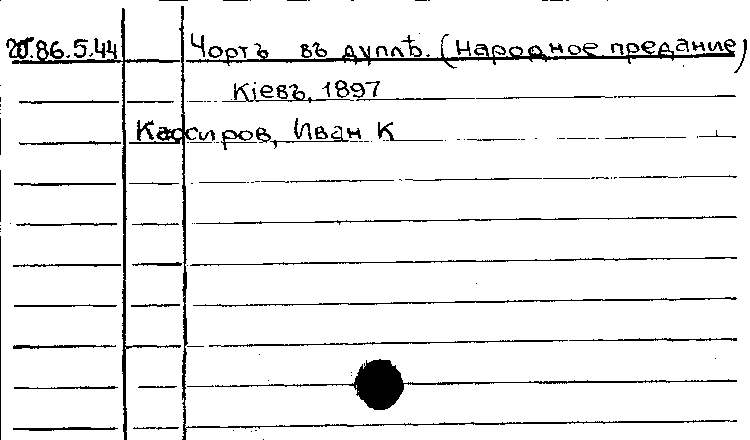 20.86.5.44 Чортъ въ дуплѣ. (Народное предание)
Кiевъ, 1897
Кассиров, Иван К